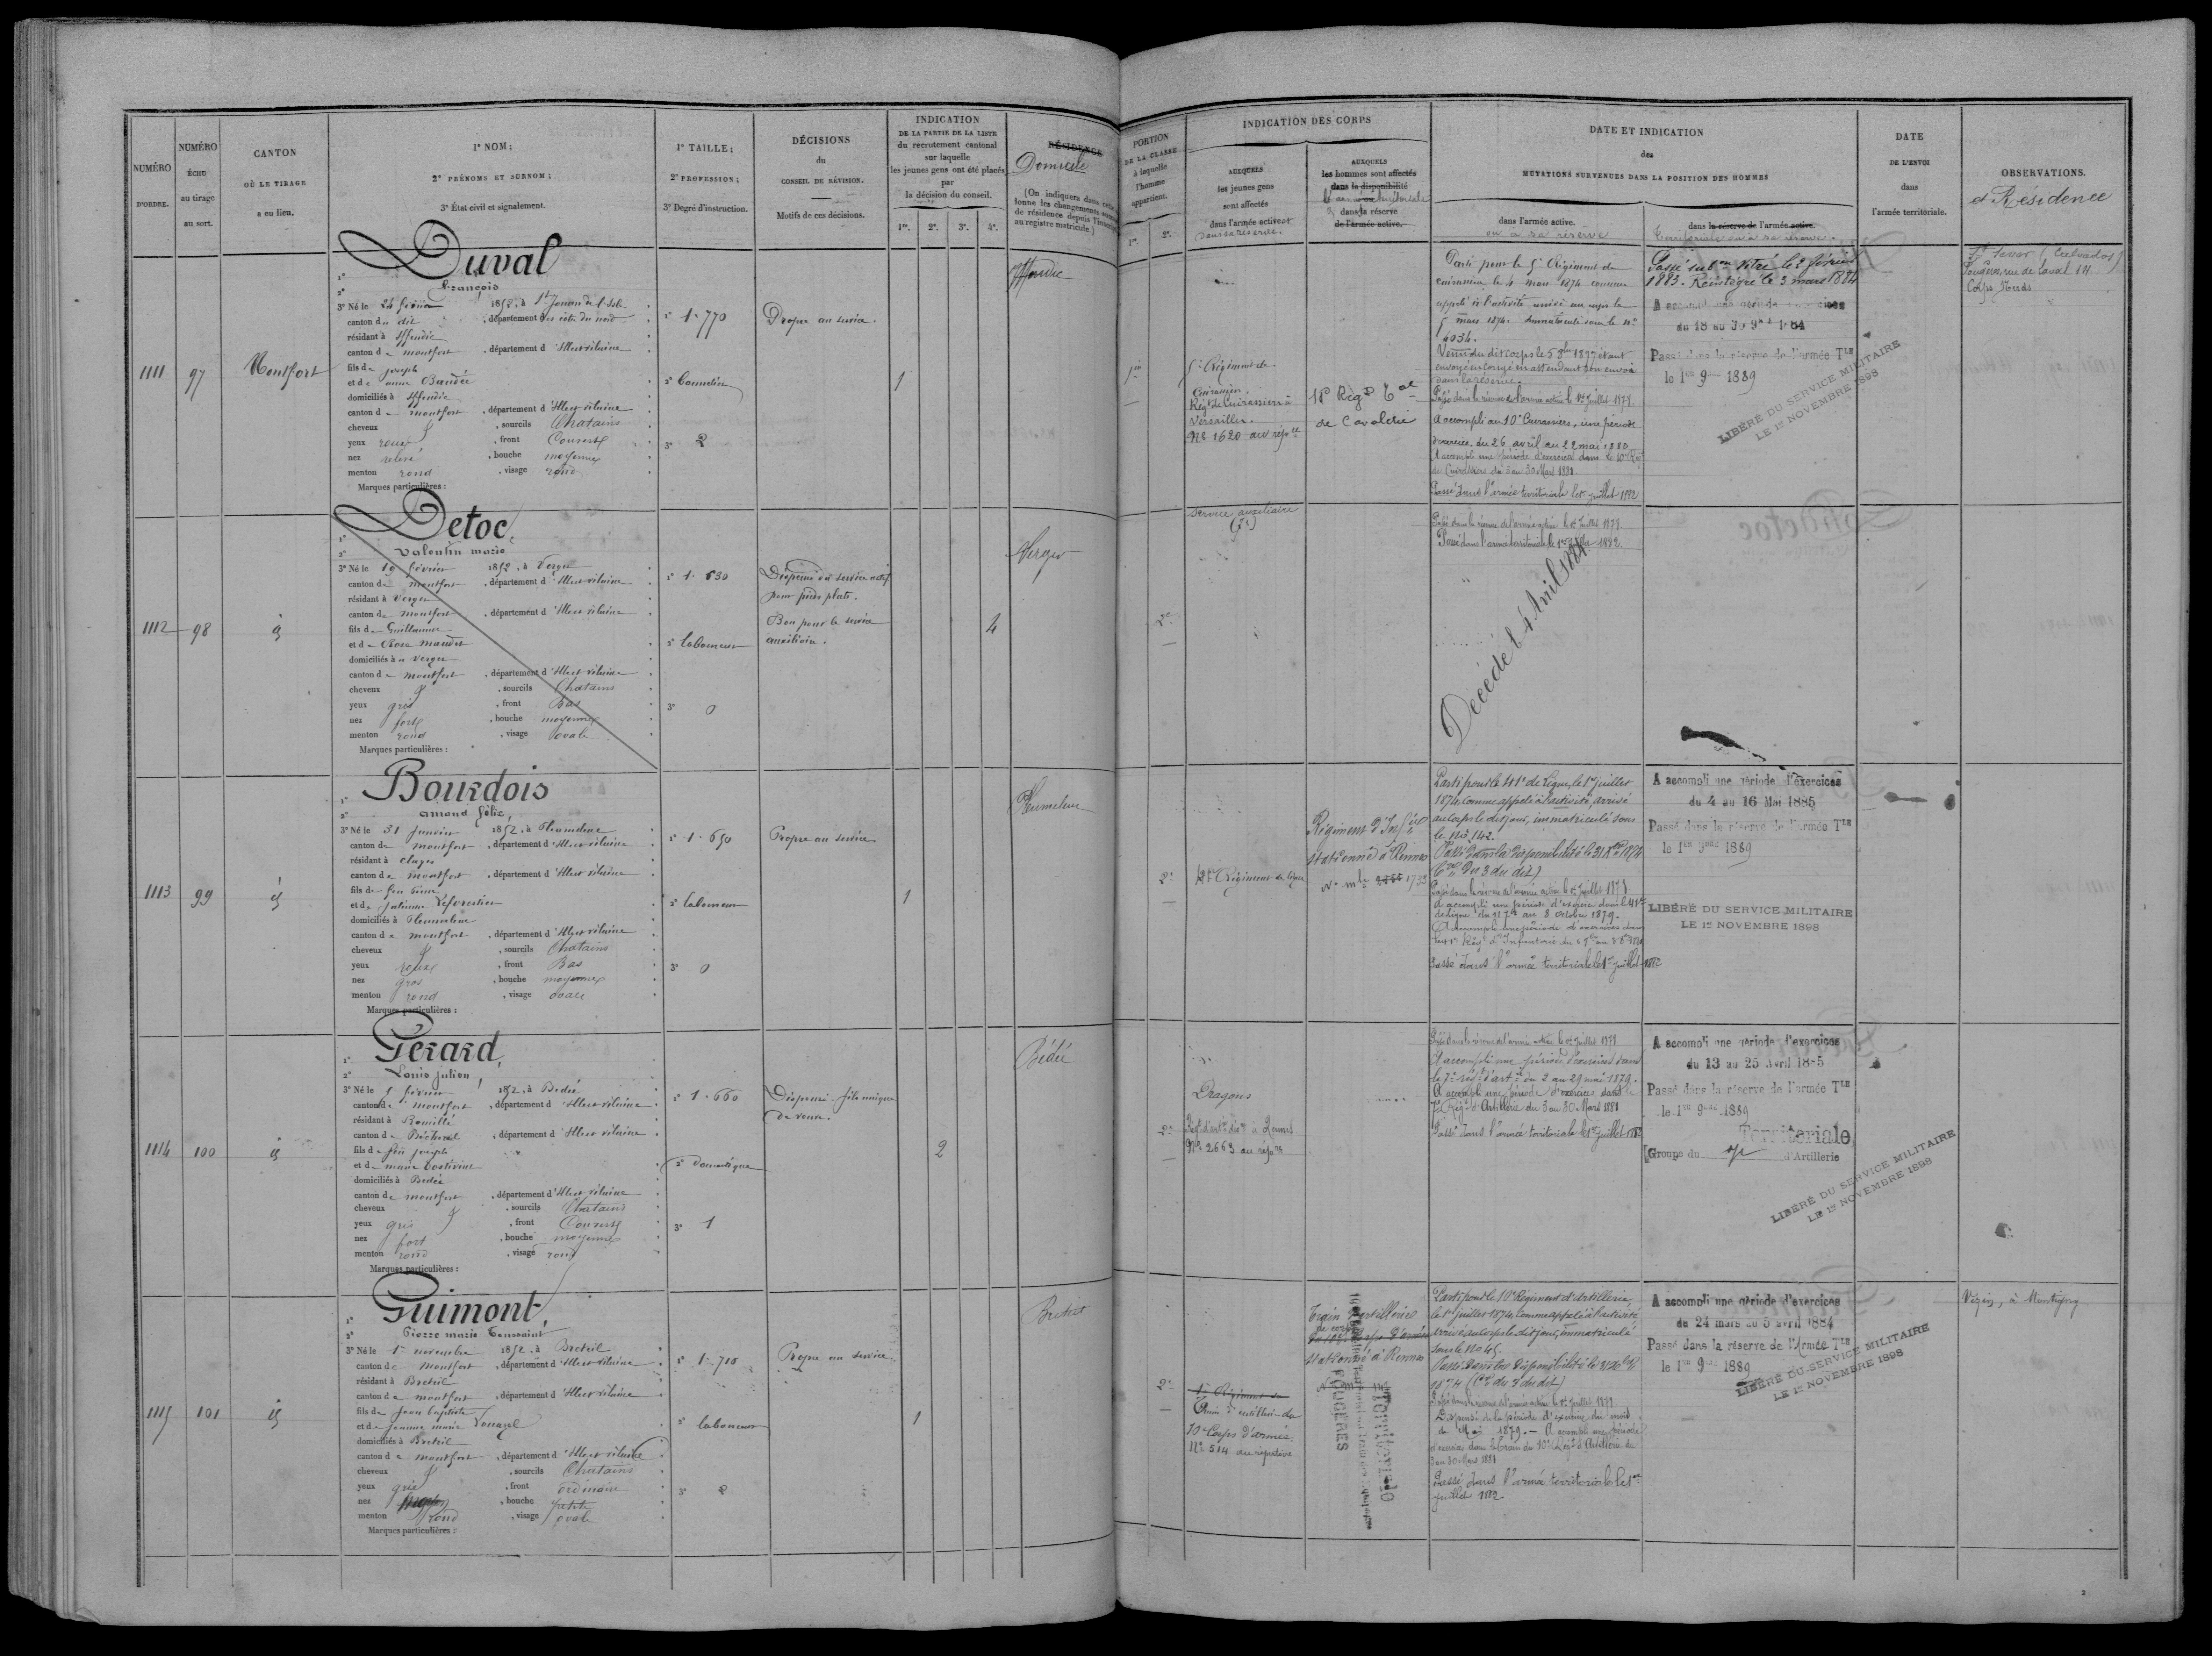 NUMÉRO
D'ORDRE.
NUMÉRO
ÉCHU
au tirage
au sort.
CANTON
OÙ LE TIRAGE
a eu lieu.
1° NOM;
2° PRÉNOMS ET SURNOM;
3° État civil et signalement.
1° TAILLE;
2° PROFESSION;
3° Degré d'instruction.
DÉCISIONS
du
CONSEIL DE RÉVISION.
Motifs de ces décisions.
INDICATION
DE LA PARTIE DE LA LISTE
du recrutement cantonal
sur laquelle
les jeunes gens ont été placés
par
la décision du conseil.
1re. 2e. 3e. 4e.
RÉSIDENCE
Domicile
PORTION
DE LA CLASSE
à laquelle
l'homme
appartient.
1re. 2e.
INDICATION DES CORPS
AUXQUELS
les jeunes gens
sont affectés
dans l'armée active et
dans sa réserve.
AUXQUELS
les hommes sont affectés
dans la disponibilité
dans la réserve
de l'armée active.
DATE ET INDICATION
des
MUTATIONS SURVENUES DANS LA POSITION DES HOMMES
dans l'armée active.
ou à sa réserve
dans la réserve de l'armée active.
Territoriale ou à sa réserve.
DATE
DE L'ENVOI
dans
l'armée territoriale.
OBSERVATIONS.
et Résidence
1111
97
Montfort
Duval
François
3° Né le 24 février 1852, à St Jouan de l'Isle
canton du dit, département des côtes du nord
résidant à Iffendic
canton de montfort, département d'Ille et vilaine
fils de joseph
et de anne Baudée
domiciliés à Iffendic
canton de montfort, département d'Ille et vilaine
cheveux, sourcils Chatains
yeux roux, front Couvert
nez relevé, bouche moyenne
menton rond, visage rond
Marques particulières :
1° 1.770
3° 2
Propre au service.
1
Iffendic
5e Régiment de
Cuirassiers.
Régt de Cuirassiers à
Versailles.
No 1620 au rép re
de Cavalerie
Parti pour le 5e Régiment de
cuirassiers le 4 mars 1874 comme
appelé à l'activité arrivé au corps le
5 mars 1874. immatriculé sous le no
4034.
envoyé en congé en attendant son envoi
dans la réserve.
Passé dans la réserve de l'armée active le 1er Juillet 1879
A accompli au 10e Cuirassiers, une période
d'exercice, du 26 avril au 22 mai 1880
A accompli une période d'exercice dans le 10e Régt
de Cuirassiers du 3 au 30 Mars 1881.
Passé dans l'armée territoriale le 1er juillet 1882
1883. Réintégré le 3 mars 1884
du 18 au 30 9bre 1884
Passé dans la réserve de l'armée Tle
le 1er 9bre 1889
LIBÉRÉ DU SERVICE MILITAIRE
LE 1er NOVEMBRE 1898
St Sever (Calvados)
Fougères, rue de Laval 14
1112
98
id
Detoc,
Valentin marie
3° Né le 19 février 1852, à Verger
canton de montfort, département d'Ille et vilaine
résidant à Verger
canton de montfort, département d'Ille et vilaine
fils de Guillaume
et de Rose
domiciliés à Verger
canton de montfort, département d'Ille et vilaine
cheveux, sourcils Chatains
yeux gris, front Bas
nez fort, bouche moyenne
menton rond, visage ovale
Marques particulières :
2° laboureur
3° 0
Dispensé du service actif
pour pieds plats.
Bon pour le service
auxiliaire.
4
Verger
2e
service auxiliaire
Passé dans la réserve de l'armée active le 1er Juillet 1879
Passé dans l'armée territoriale le 1er Juillet 1882.
Décédé le 4 Avril
1113
99
id
Bourdois
amand félix,
3° Né le 31 Janvier 1852, à Pleumeleuc
canton de montfort, département d'Ille et vilaine
résidant à Clayes
canton de montfort, département d'Ille et vilaine
fils de feu Pierre
et de julienne Leforestier
domiciliés à Pleumeleuc
canton de montfort, département d'Ille et vilaine
cheveux, sourcils Chatains
yeux roux, front Bas
nez gros, bouche moyenne
menton rond, visage ovale
Marques particulières :
1° 1.650
2° laboureur
3° 0
Propre au service
1
Pleumeleuc
2e
41e Régiment de ligne
Régiment d'Infie
stationné à Rennes
No mle 1733
Parti pour le 41e de Ligne, le 1er juillet
1874, comme appelé à l'activité, arrivé
au corps le dit jour, immatriculé sous
le No 142.
Passé dans la disponibilité le 31 Xbre 1874
(Cre du 3 du dit)
Passé dans la réserve de l'armée active le 1er Juillet 1879
A accompli une période d'exercice dans le 41e
de ligne du 11 7bre au 8 octobre 1879.
Passé dans l'armée territoriale le 1er juillet 1882
A accompli une période d'exercices
du 4 au 16 Mai 1885
Passé dans la réserve de l'armée Tle
le 1er 9bre 1889
LIBÉRÉ DU SERVICE MILITAIRE
LE 1er NOVEMBRE 1898
1114
100
id
Gérard,
Louis julien,
3° Né le 5 février 1852, à Bédée
canton de montfort, département d'Ille et vilaine
résidant à Romillé
canton de Bécherel, département d'Ille et vilaine
fils de feu joseph
et de marie
domiciliés à Bédée
canton de montfort, département d'Ille et vilaine
cheveux, sourcils Chatains
yeux gris, front Couvert
nez fort, bouche moyenne
menton rond, visage rond
Marques particulières :
1° 1.660
2° domestique
3° 1
Dispensé. fils unique
de veuve.
2
Bédée
2e
Dragons
No 2663 au rép re
Passé dans la réserve de l'armée active le 1er Juillet 1879
A accompli une période d'exercices dans
le 7e régt d'artie du 2 au 29 mai 1879.
A accompli une période d'exercices dans le
7e Régt d'Artillerie du 3 au 30 Mars 1881
Passé dans l'armée territoriale le 1er juillet 1882
A accompli une période d'exercices
du 13 au 25 Avril 1885
Passé dans la réserve de l'armée Tle
le 1er 9bre 1889
Territoriale
Groupe du d'Artillerie
LIBÉRÉ DU SERVICE MILITAIRE
LE 1er NOVEMBRE 1898
1115
101
id
Guimont,
Pierre marie Toussaint
3° Né le 1er novembre 1852, à Breteil
canton de montfort, département d'Ille et vilaine
résidant à Breteil
canton de montfort, département d'Ille et vilaine
fils de Jean baptiste
et de jeanne marie Louazel
domiciliés à Breteil
canton de montfort, département d'Ille et vilaine
cheveux, sourcils Chatains
yeux gris, front ordinaire
nez, bouche petite
menton rond, visage ovale
Marques particulières :
1° 1.710
2° laboureur
3° 2
Propre au service
1
Breteil
2e
Train d'artillerie du
10e Corps d'armée
No 514 au répertoire
Train d'artillerie
stationné à Rennes
Territoriale
FOUGÈRES
Parti pour le 10e Régiment d'Artillerie
le 1er juillet 1874, comme appelé à l'activité
arrivé au corps le dit jour, immatriculé
sous le No 45.
1874 (Cre du 3 du dit)
Passé dans la réserve de l'armée active le 1er Juillet 1879
Dispensé de la période d'exercice du mois
de Mai 1879. — A accompli une période
d'exercices dans le Train du 10e Régt d'Artillerie du
3 au 30 Mars 1881
Passé dans l'armée territoriale le 1er
juillet 1882.
A accompli une période d'exercices
du 24 mars au 5 avril 1884
Passé dans la réserve de l'Armée Tle
le 1er 9bre 1889
LIBÉRÉ DU SERVICE MILITAIRE
LE 1er NOVEMBRE 1898